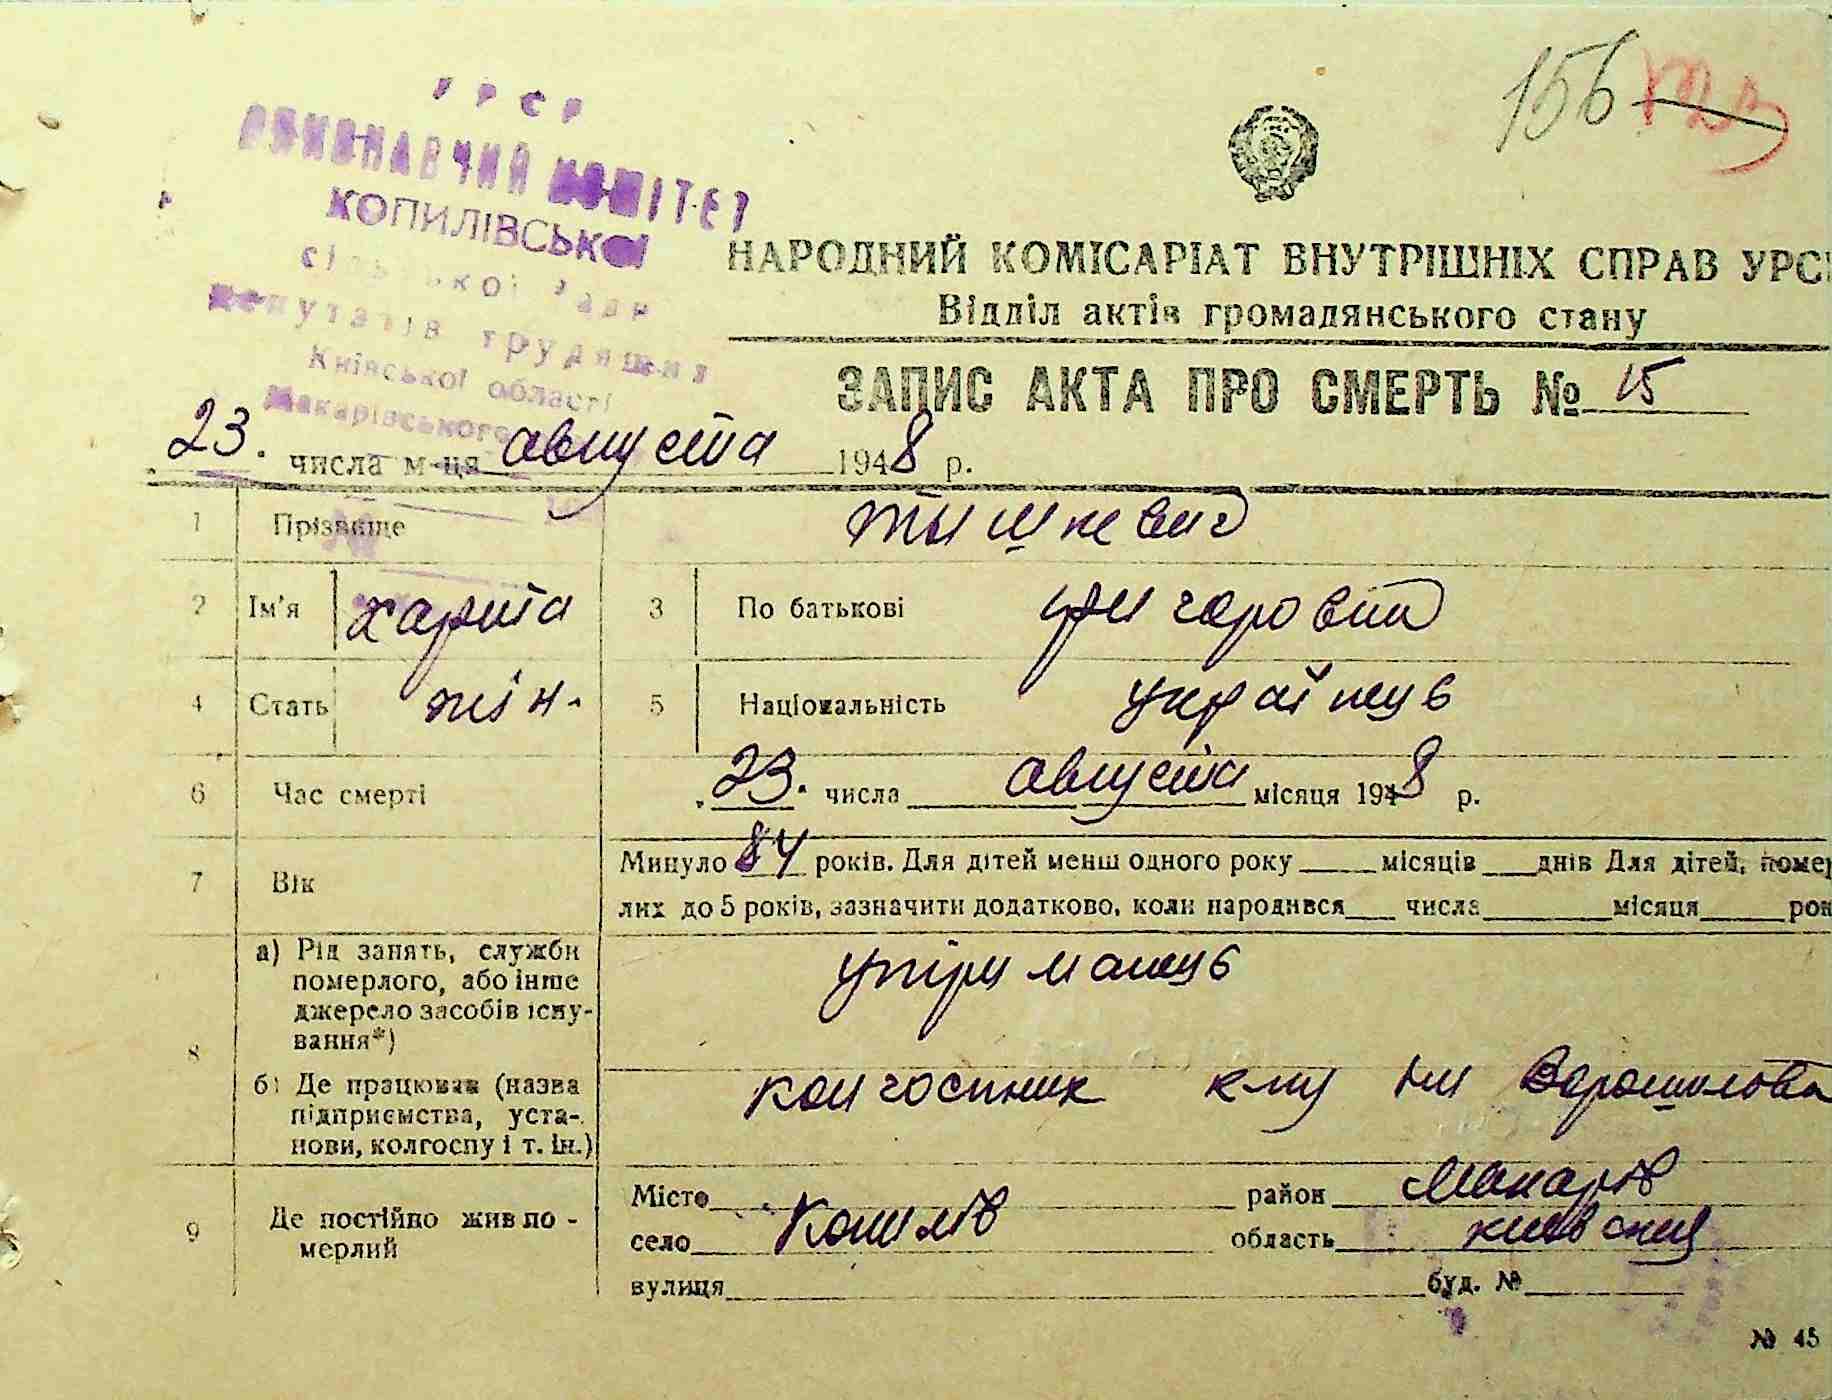 УРСР
ВИКОНАВЧИЙ КОМІТЕТ
КОПИЛІВСЬКОЇ
сільської ради
депутатів трудящих
Київської області
Макарівського
156
НАРОДНИЙ КОМІСАРІАТ ВНУТРІШНІХ СПРАВ УРС
Відділ актів громадянського стану
ЗАПИС АКТА ПРО СМЕРТЬ № 15
„23. числа м-ця августа 1948 р.
1 Прізвище тышкевич
2 Ім'я харита 3 По батькові григоровна
4 Стать жін. 5 Національність українць
6 Час смерті „23. числа августа місяця 1948 р.
7 Вік Минуло 84 років. Для дітей менш одного року ____ місяців ___ днів Для дітей, помер
лих до 5 років, зазначити додатково, коли народився ___ числа ______ місяця ____ рок
8 а) Рід занять, служби
померлого, або інше
джерело засобів існу-
вання*)
утриманець
б) Де працював (назва
підприємства, уста-
нови, колгоспу і т. ін.)
колгоспник клгу им Ворошилова
9 Де постійно жив по-
мерлий
Місто район Макарів
село Копилів область киевская
вулиця буд. №
№ 45